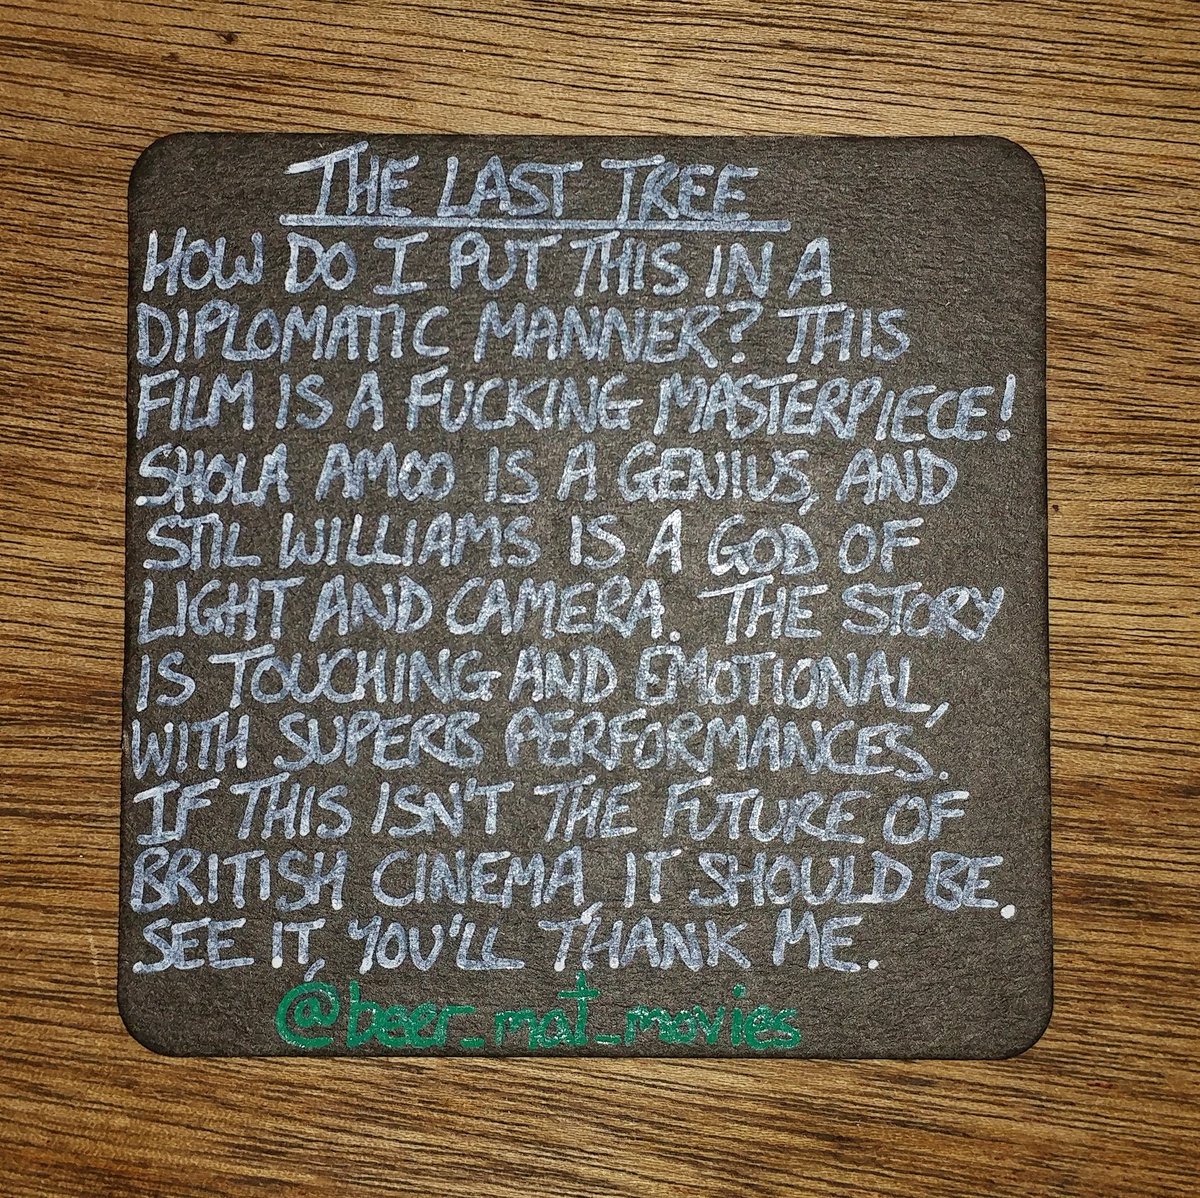 THE LAST TREE
HOW DO I PUT THIS IN A
DIPLOMATIC MANNER? THIS
FILM IS A FUCKING MASTERPIECE!
SHOLA AMOO IS A GENIUS, AND
STIL WILLIAMS IS A GOD OF
LIGHT AND CAMERA. THE STORY
IS TOUCHING AND EMOTIONAL,
WITH SUPERB PERFORMANCES.
IF THIS ISN'T THE FUTURE OF
BRITISH CINEMA, IT SHOULD BE.
SEE IT, YOU'LL THANK ME.
@beer_mat_movies